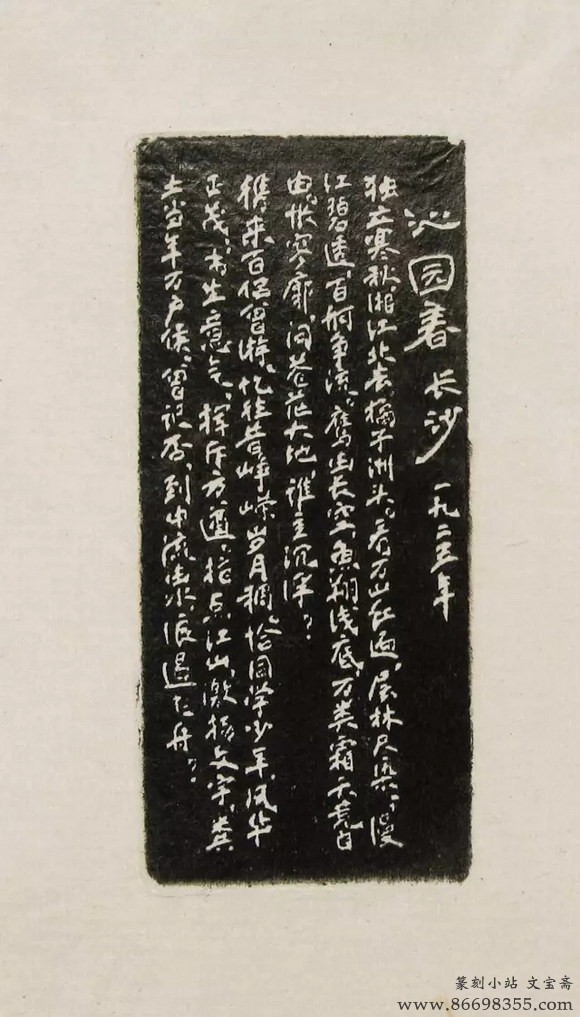 沁园春 长沙 一九二五年
独立寒秋,湘江北去,橘子洲头。看万山红遍,层林尽染;漫
江碧透,百舸争流。鹰击长空,鱼翔浅底,万类霜天竞自
由。怅寥廓,问苍茫大地,谁主沉浮?
携来百侣曾游。忆往昔峥嵘岁月稠。恰同学少年,风华
正茂;书生意气,挥斥方遒。指点江山,激扬文字,粪
土当年万户侯。曾记否,到中流击水,浪遏飞舟?
篆刻小站 文宝斋
www.86698355.com